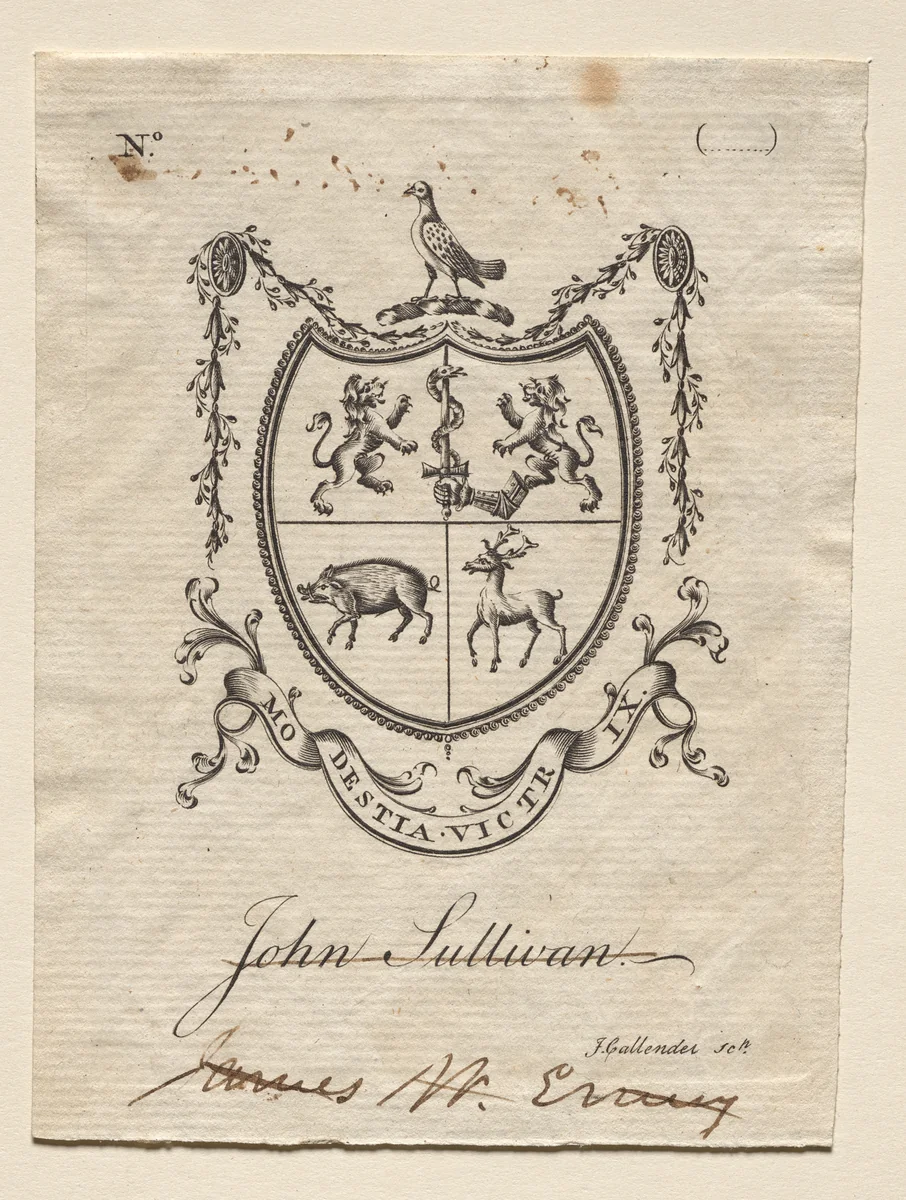 Nº.
(..........)
MODESTIA · VICTRIX.
John Sullivan.
J. Callender sclt.
James W. Emery